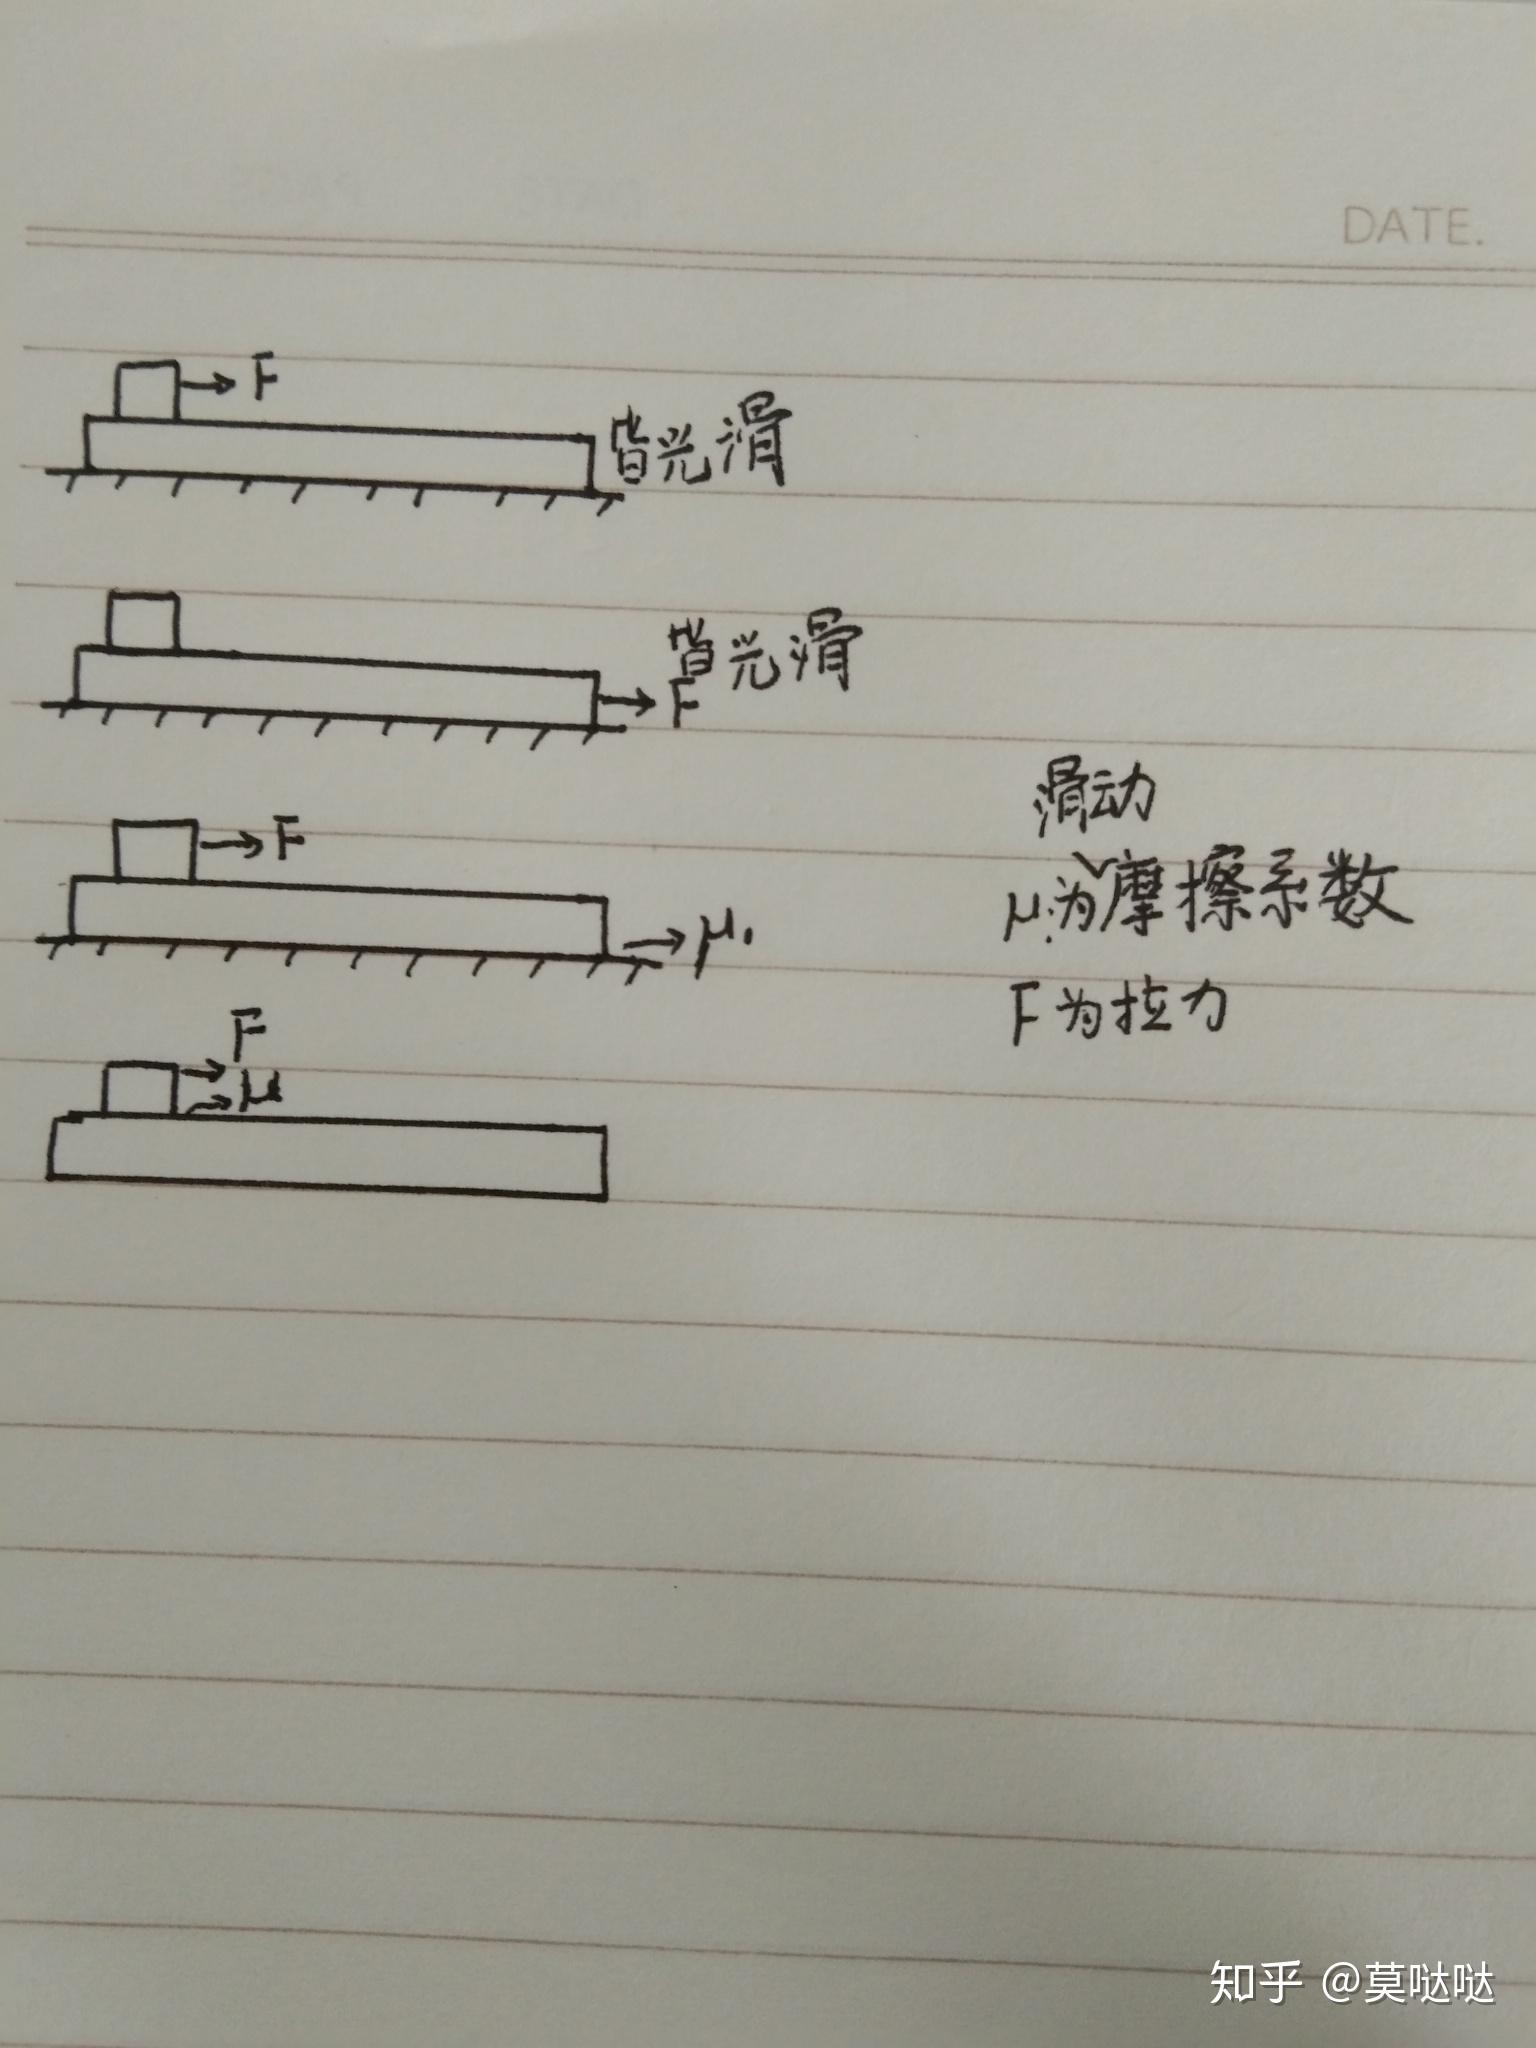 DATE.
F
皆光滑
皆光滑
F
滑动
F
μ为摩擦系数
μ.
F为拉力
F
μ
知乎 @莫哒哒